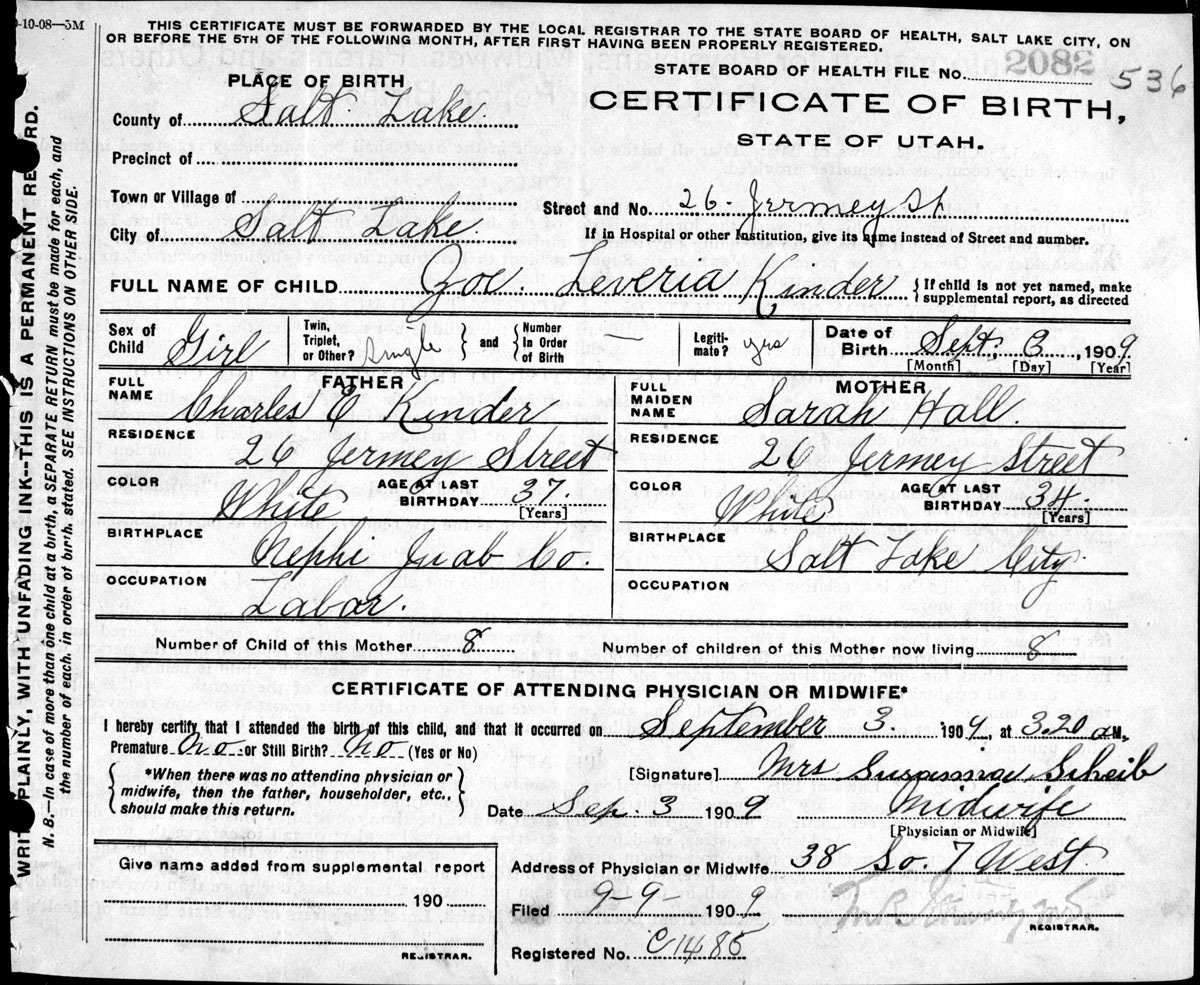 -10-08—5M
THIS CERTIFICATE MUST BE FORWARDED BY THE LOCAL REGISTRAR TO THE STATE BOARD OF HEALTH, SALT LAKE CITY, ON
OR BEFORE THE 5TH OF THE FOLLOWING MONTH, AFTER FIRST HAVING BEEN PROPERLY REGISTERED.
STATE BOARD OF HEALTH FILE No. 2082 536
CERTIFICATE OF BIRTH,
STATE OF UTAH.
PLACE OF BIRTH
County of Salt Lake
Precinct of
Town or Village of
City of Salt Lake
Street and No. 26 Jermey St
If in Hospital or other Institution, give its name instead of Street and number.
FULL NAME OF CHILD Zoe Leveria Kinder { If child is not yet named, make
supplemental report, as directed
Sex of Child Girl
Twin, Triplet, or Other? Single } and { Number In Order of Birth —
Legiti- mate? yes
Date of Birth Sept. 3, 1909
[Month] [Day] [Year]
FATHER
FULL NAME Charles E Kinder
RESIDENCE 26 Jermey Street
COLOR White AGE AT LAST BIRTHDAY 37. [Years]
BIRTHPLACE Nephi Juab Co.
OCCUPATION Labar.
MOTHER
FULL MAIDEN NAME Sarah Hall.
RESIDENCE 26 Jermey Street
COLOR White AGE AT LAST BIRTHDAY 34 [Years]
BIRTHPLACE Salt Lake City
OCCUPATION
Number of Child of this Mother 8 Number of children of this Mother now living 8
CERTIFICATE OF ATTENDING PHYSICIAN OR MIDWIFE*
I hereby certify that I attended the birth of this child, and that it occurred on September 3. 1909, at 3.20 a M.
Premature No or Still Birth? No (Yes or No)
{ *When there was no attending physician or
midwife, then the father, householder, etc.,
should make this return. }
[Signature] Mrs Susannae Scheib
Date Sep. 3 1909 Midwife
[Physician or Midwife]
Give name added from supplemental report
190
REGISTRAR.
Address of Physician or Midwife 38 So. 7 West
Filed 9-9- 1909
REGISTRAR.
Registered No. C1485
WRITE PLAINLY, WITH UNFADING INK--THIS IS A PERMANENT RECORD.
N. B.—In case of more than one child at a birth, a SEPARATE RETURN must be made for each, and
the number of each, in order of birth, stated. SEE INSTRUCTIONS ON OTHER SIDE.